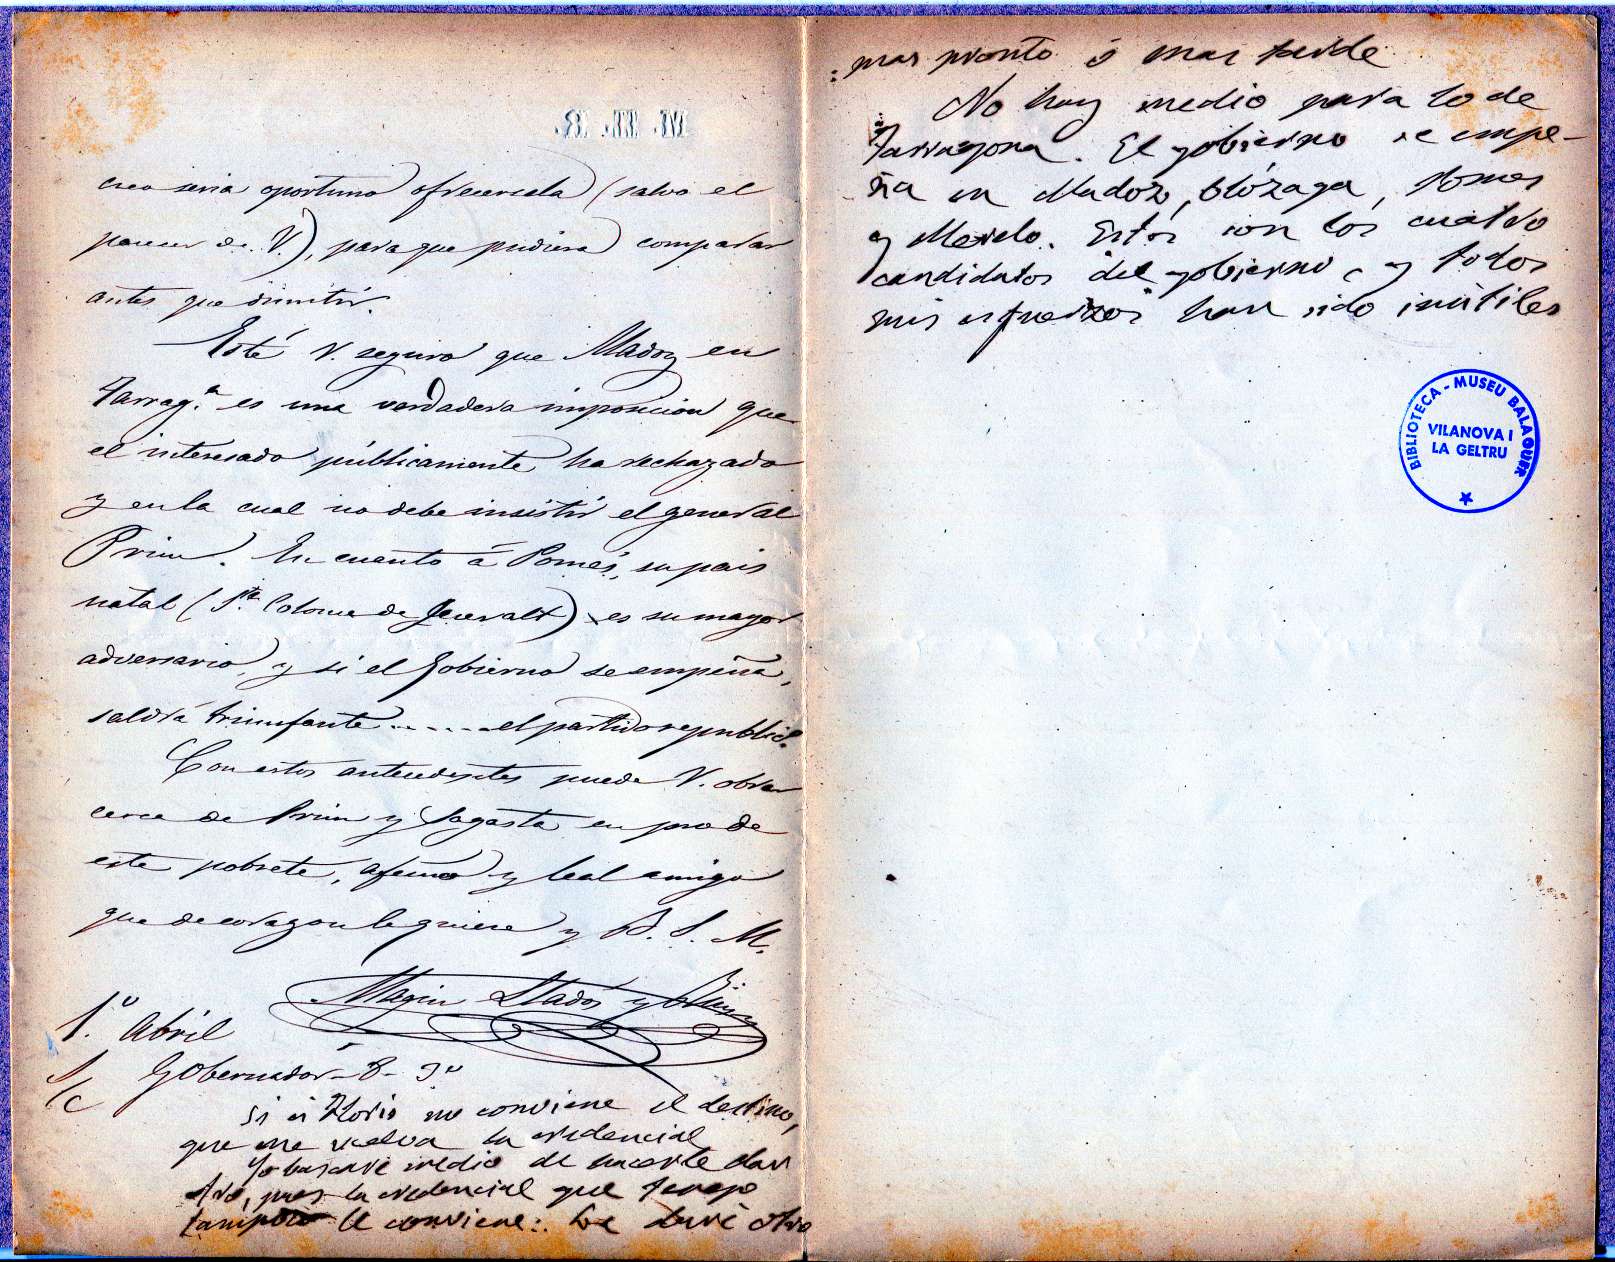 M. Ll. B.
creo seria oportuno ofrecersela (salvo el
parecer de V.), para que pudiera comparar
antes que dimitir.
Esté V. seguro que Madoz en
Tarrag.ª es una verdadera imposicion que
el interesado públicamente ha rechazado
y en la cual no debe insistir el general
Prim. En cuanto á Pomés, su pais
natal (S.ta Coloma de Queralt) es su mayor
adversario, y si el Gobierno se empeña,
saldrá triunfante.....el partido republic.º
Con estos antecedentes puede V. obrar
cerca de Prim y Sagasta en pro de
este pobrete, afmo y leal amigo
que de corazon le quiere y B. S. M.
Magin Lladós y Rius
1.º Abril
S/c Gobernador-8-3º
Si á no conviene el destino,
que me vuelva la credencial
Yo buscaré medio de hacerle dar
otro, pues la credencial que tengo
tampoco le conviene: Le daré otro
mas pronto ó mas tarde
No hay medio para lo de
Tarragona. El gobierno se empe-
ña en Madoz, Olózaga, Pomes
y Merelo. Estos son los cuatro
candidatos del gobierno, y todos
mis esfuerzos han sido inútiles
BIBLIOTECA - MUSEU BALAGUER
VILANOVA I
LA GELTRU